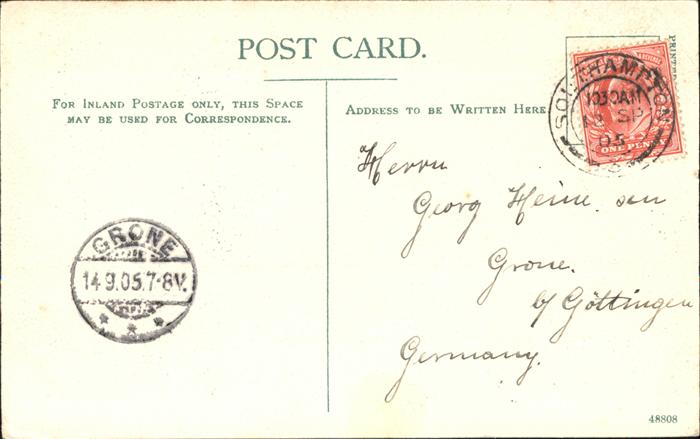 POST CARD.
FOR INLAND POSTAGE ONLY, THIS SPACE
MAY BE USED FOR CORRESPONDENCE.
ADDRESS TO BE WRITTEN HERE
PRINTE
SOUTHAMPTON
1030AM
SP
05
ONE PEN
Herrn
Georg Heine. sen
Grone.
b/ Göttingen
Germany.
GRONE
14.9.05.7-8V.
* * *
48808